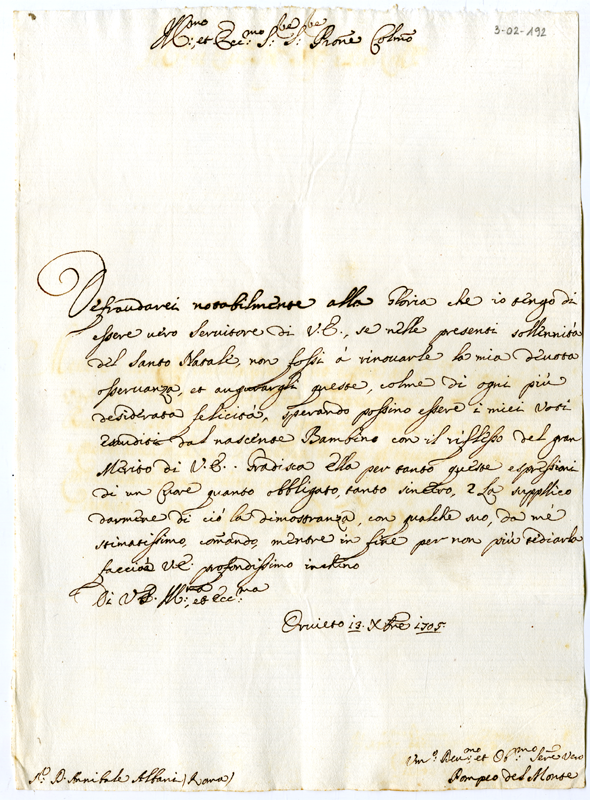 Ill:mo et Ecc:mo S:re S:re Prone Colmo
3-02-192
Defraudarei notabilmente alla Gloria che io tengo di
essere vero Servitore di V.E., se nelle presenti sollennità
del Santo Natale, non fossi à rinovarle la mia devota
osservanza, et augurargli queste, colme di ogni più
desiderata felicità, sperando possino essere i miei voti
esauditi dal nascente Bambino con il riflesso del gran
Merito di V.E.. Gradisca Ella per tanto queste espressioni
di un Cuore quanto obbligato, tanto sincero, e La supplico
darmene di ciò la dimostranza, con qualche suo, da mè
stimatissimo, comãndo, mentre in fine per non più tediarla
faccio à V.E. profondissimo inchino
Di V.E. Ill:ma et Ecc:ma
Orvieto 13. Xbre 1705.
Um:o Dev:mo et Ob:mo Sere Vero
Pompeo del Monte
S.r D. Annibale Albani (Roma)